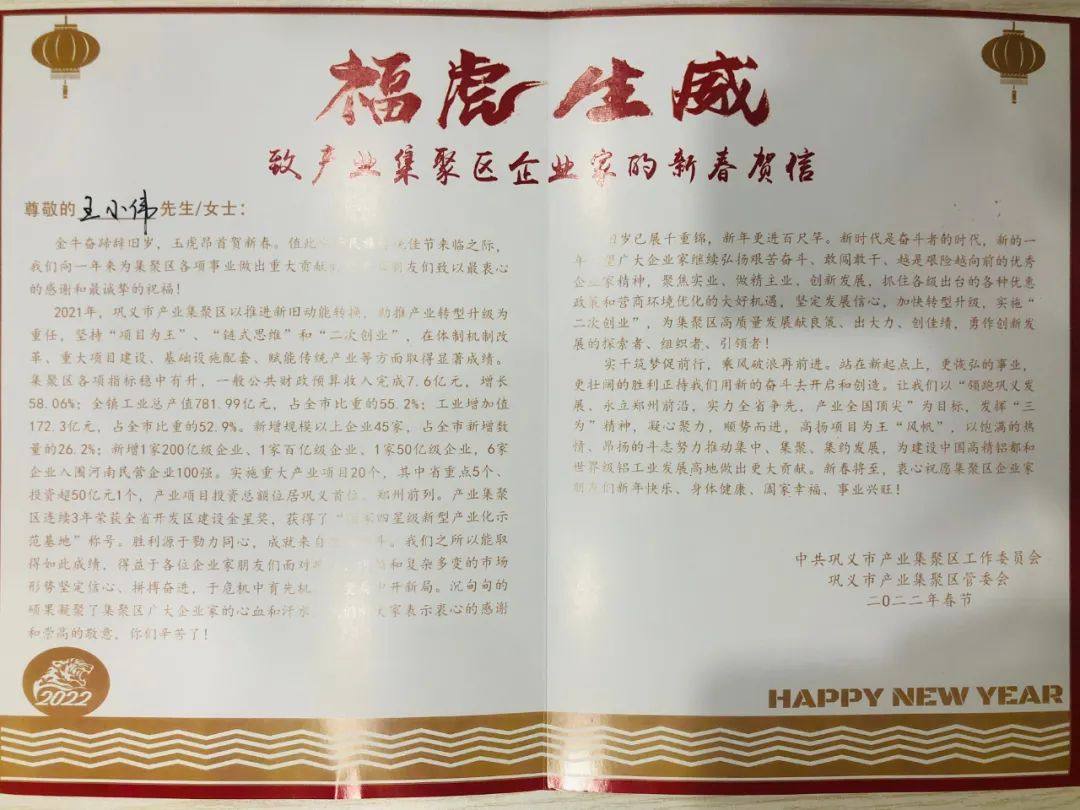 福虎生威
致产业集聚区企业家的新春贺信
尊敬的王小伟先生/女士：
金牛奋蹄辞旧岁，玉虎昂首贺新春。值此 佳节来临之际，
我们向一年来为集聚区各项事业做出重大贡献 朋友们致以最衷心
的感谢和最诚挚的祝福！
2021年，巩义市产业集聚区以推进新旧动能转换，助推产业转型升级为
重任，坚持“项目为王”、“链式思维”和“二次创业”，在体制机制改
革、重大项目建设、基础设施配套、赋能传统产业等方面取得显著成绩。
集聚区各项指标稳中有升，一般公共财政预算收入完成7.6亿元，增长
58.06%；全镇工业总产值781.99亿元，占全市比重的55.2%；工业增加值
172.3亿元，占全市比重的52.9%。新增规模以上企业45家，占全市新增数
量的26.2%；新增1家200亿级企业、1家百亿级企业、1家50亿级企业，6家
企业入围河南民营企业100强。实施重大产业项目20个，其中省重点5个、
投资超50亿元1个，产业项目投资总额位居巩义首位、郑州前列。产业集聚
区连续3年荣获全省开发区建设金星奖，获得了“国家四星级新型产业化示
范基地”称号。胜利源于勠力同心，成就来自 斗。我们之所以能取
得如此成绩，得益于各位企业家朋友们面对 和复杂多变的市场
形势坚定信心、拼搏奋进，于危机中育先机 中开新局。沉甸甸的
硕果凝聚了集聚区广大企业家的心血和汗水， 大家表示衷心的感谢
和崇高的敬意，你们辛苦了！
旧岁已展千重锦，新年更进百尺竿。新时代是奋斗者的时代，新的一
年 望广大企业家继续弘扬艰苦奋斗、敢闯敢干、越是艰险越向前的优秀
企业家精神，聚焦实业、做精主业、创新发展，抓住各级出台的各种优惠
政策和营商环境优化的大好机遇，坚定发展信心，加快转型升级，实施“
二次创业”，为集聚区高质量发展献良策、出大力、创佳绩，勇作创新发
展的探索者、组织者、引领者！
实干筑梦促前行，乘风破浪再前进。站在新起点上，更恢弘的事业，
更壮阔的胜利正待我们用新的奋斗去开启和创造。让我们以“领跑巩义发
展、永立郑州前沿，实力全省争先，产业全国顶尖”为目标，发挥“三
为”精神，凝心聚力，顺势而进，高扬项目为王“风帆”，以饱满的热
情、昂扬的斗志努力推动集中、集聚、集约发展，为建设中国高精铝都和
世界级铝工业发展高地做出更大贡献。新春将至，衷心祝愿集聚区企业家
朋友们新年快乐、身体健康、阖家幸福、事业兴旺！
中共巩义市产业集聚区工作委员会
巩义市产业集聚区管委会
二〇二二年春节
2022
HAPPY NEW YEAR